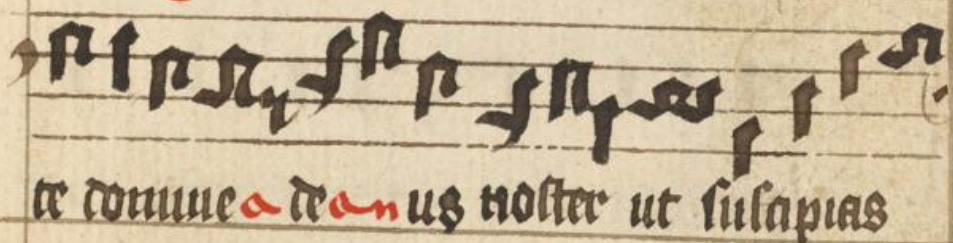 te domine a de an us noster ut suscipias